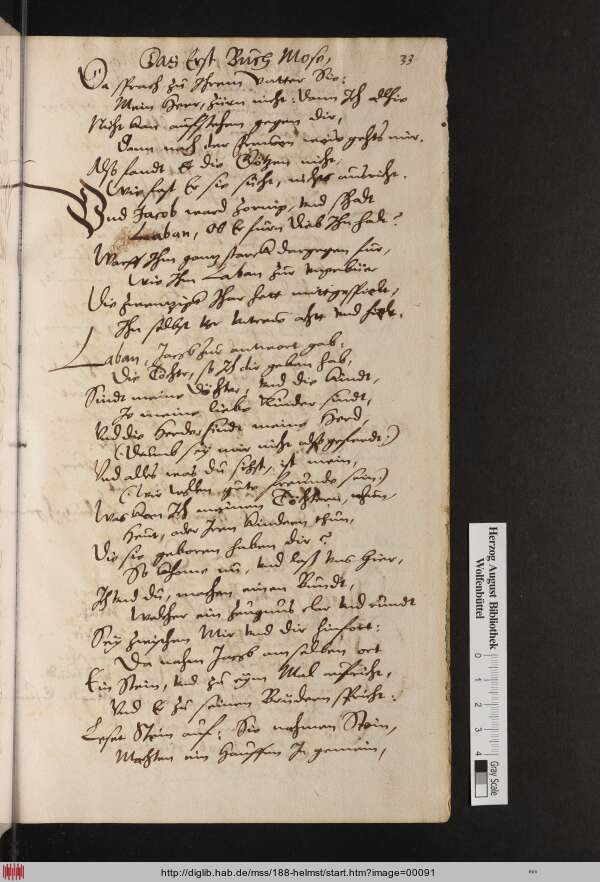 Das Erst Buch Mose,
33
Da sprach zu Ihrem Vatter Sie:
Mein Herr, zürn nicht: dann Ich alhie
Nicht kan auffstehen gegen dir,
Dann nach der frawen weis gehts mir.
Also fandt Er die Götzen nicht,
Wie fast Er sie sucht, nichts ausricht.
Und Jacob ward zornig, und schalt
Laban, Ob Er fürn Dieb Ihn halt?
Warff Ihm ganz starck dargegen für,
Wie Ihm Laban zur
Die zwenzigk Jhar hett mittgespielt,
Ihn selbst
Laban, Jacob zur antwort gab,
Die Töchter, so Ich dir geben hab,
Sindt meine Döchter, und die Kindt,
Jo meine liebe Kinder sindt,
Und die Herde sindt meine Herd
(Darumb sey mir nicht also geferdt:)
Und alles was du sihst, ist mein,
(Wir wollen gute freunde sein:)
Was kan Ich meinen Töchtern, nhun,
Heut, oder Iren Kindern thun,
Die sie geboren haben dir?
So khome nu, und lass uns hier,
Ich und du, machen einen Bundt,
Welcher ein Zeugnus clar und rundt
Sey zwischen Mir und dir hinfort:
Da nahm Jacob am selben ort
Ein Stein, und zu eim Mal aufricht,
Und Er zu seinen Brüdern spricht:
Leset Stein auf: Sie nahmen Stein,
Machten ein Hauffen In gemein,
Herzog August Bibliothek
Wolfenbüttel
0 1 2 3 4
Gray Scale
http://diglib.hab.de/mss/188-helmst/start.htm?image=00091